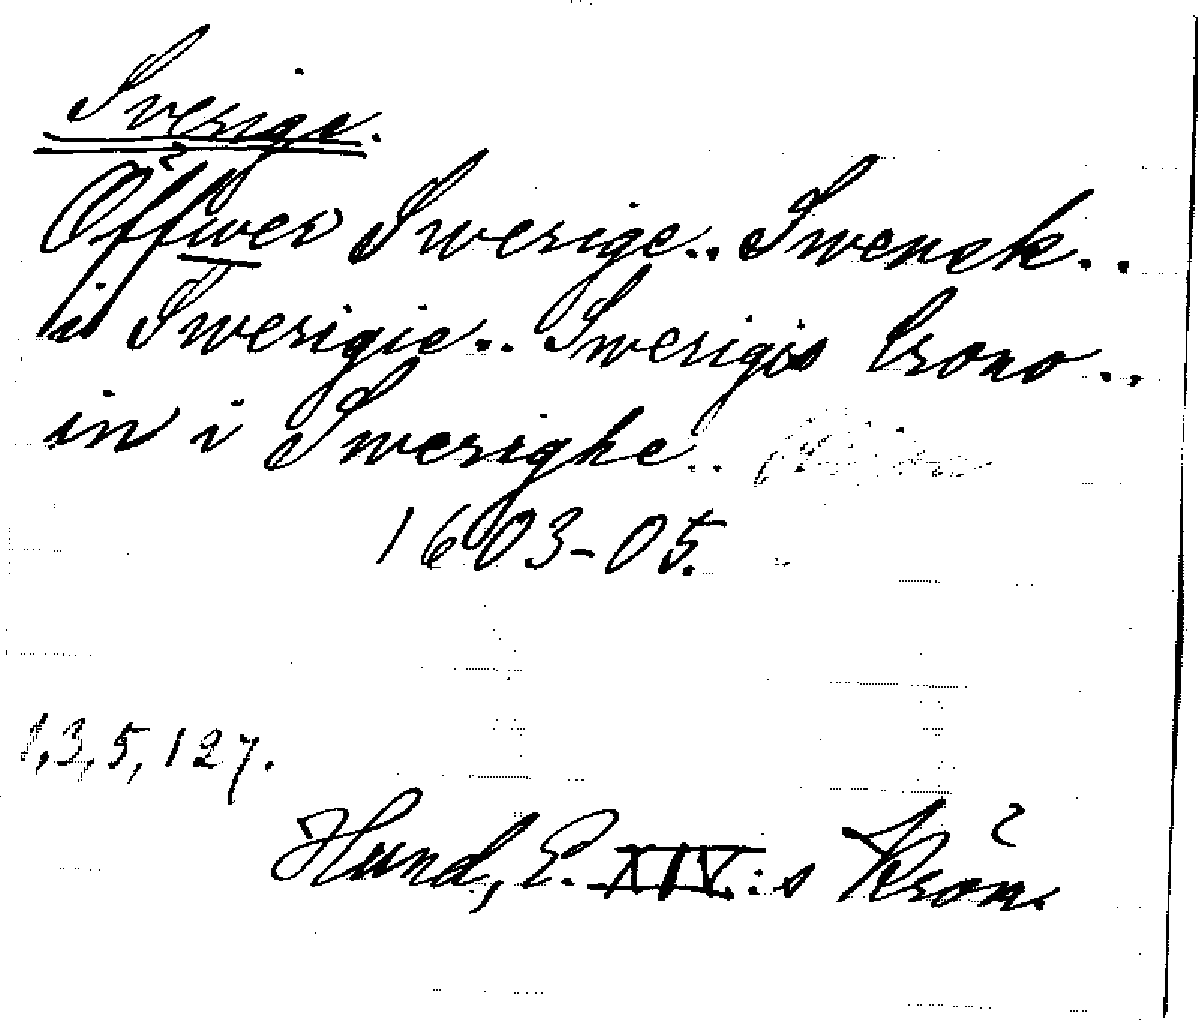 Sverige.
Öffwer Swerige.. Swensk..
i Swerigie.. Swerigis Crono..
in i Swerighe..
1603-05.
1,3,5,127.
Hund, E. XIV:s Krön.